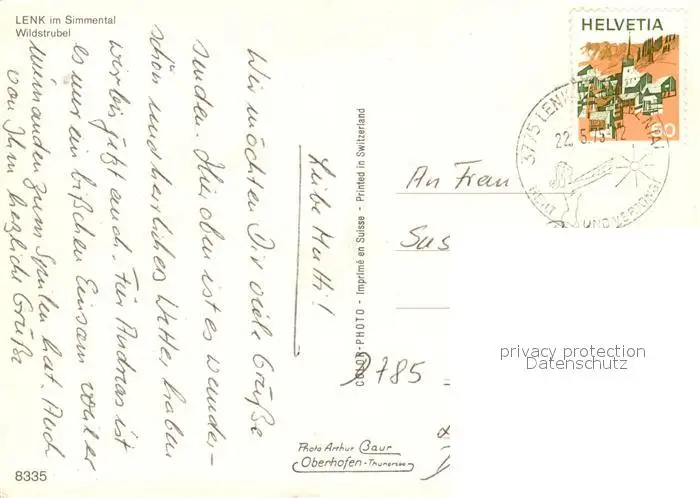 LENK im Simmental
Wildstrubel
Liebe Mutti!
Wir möchten Dir viele Grüße
senden. Hier oben ist es wunder-
schön und herrliches Wetter haben
wir bis jetzt auch. Für Andreas ist
es nur ein bißchen Einsam weil er
niemanden zum Spielen hat. Auch
von Ihm herzliche Grüße
8335
COLOR-PHOTO - Imprimé en Suisse - Printed in Switzerland
Photo Arthur Baur
Oberhofen-Thunersee
HELVETIA
60
3775 LENK IM SIMMENTAL
22.5.75-12
HEILT UND VERJÜNGT
An Frau
Sus
8785
privacy protection
Datenschutz